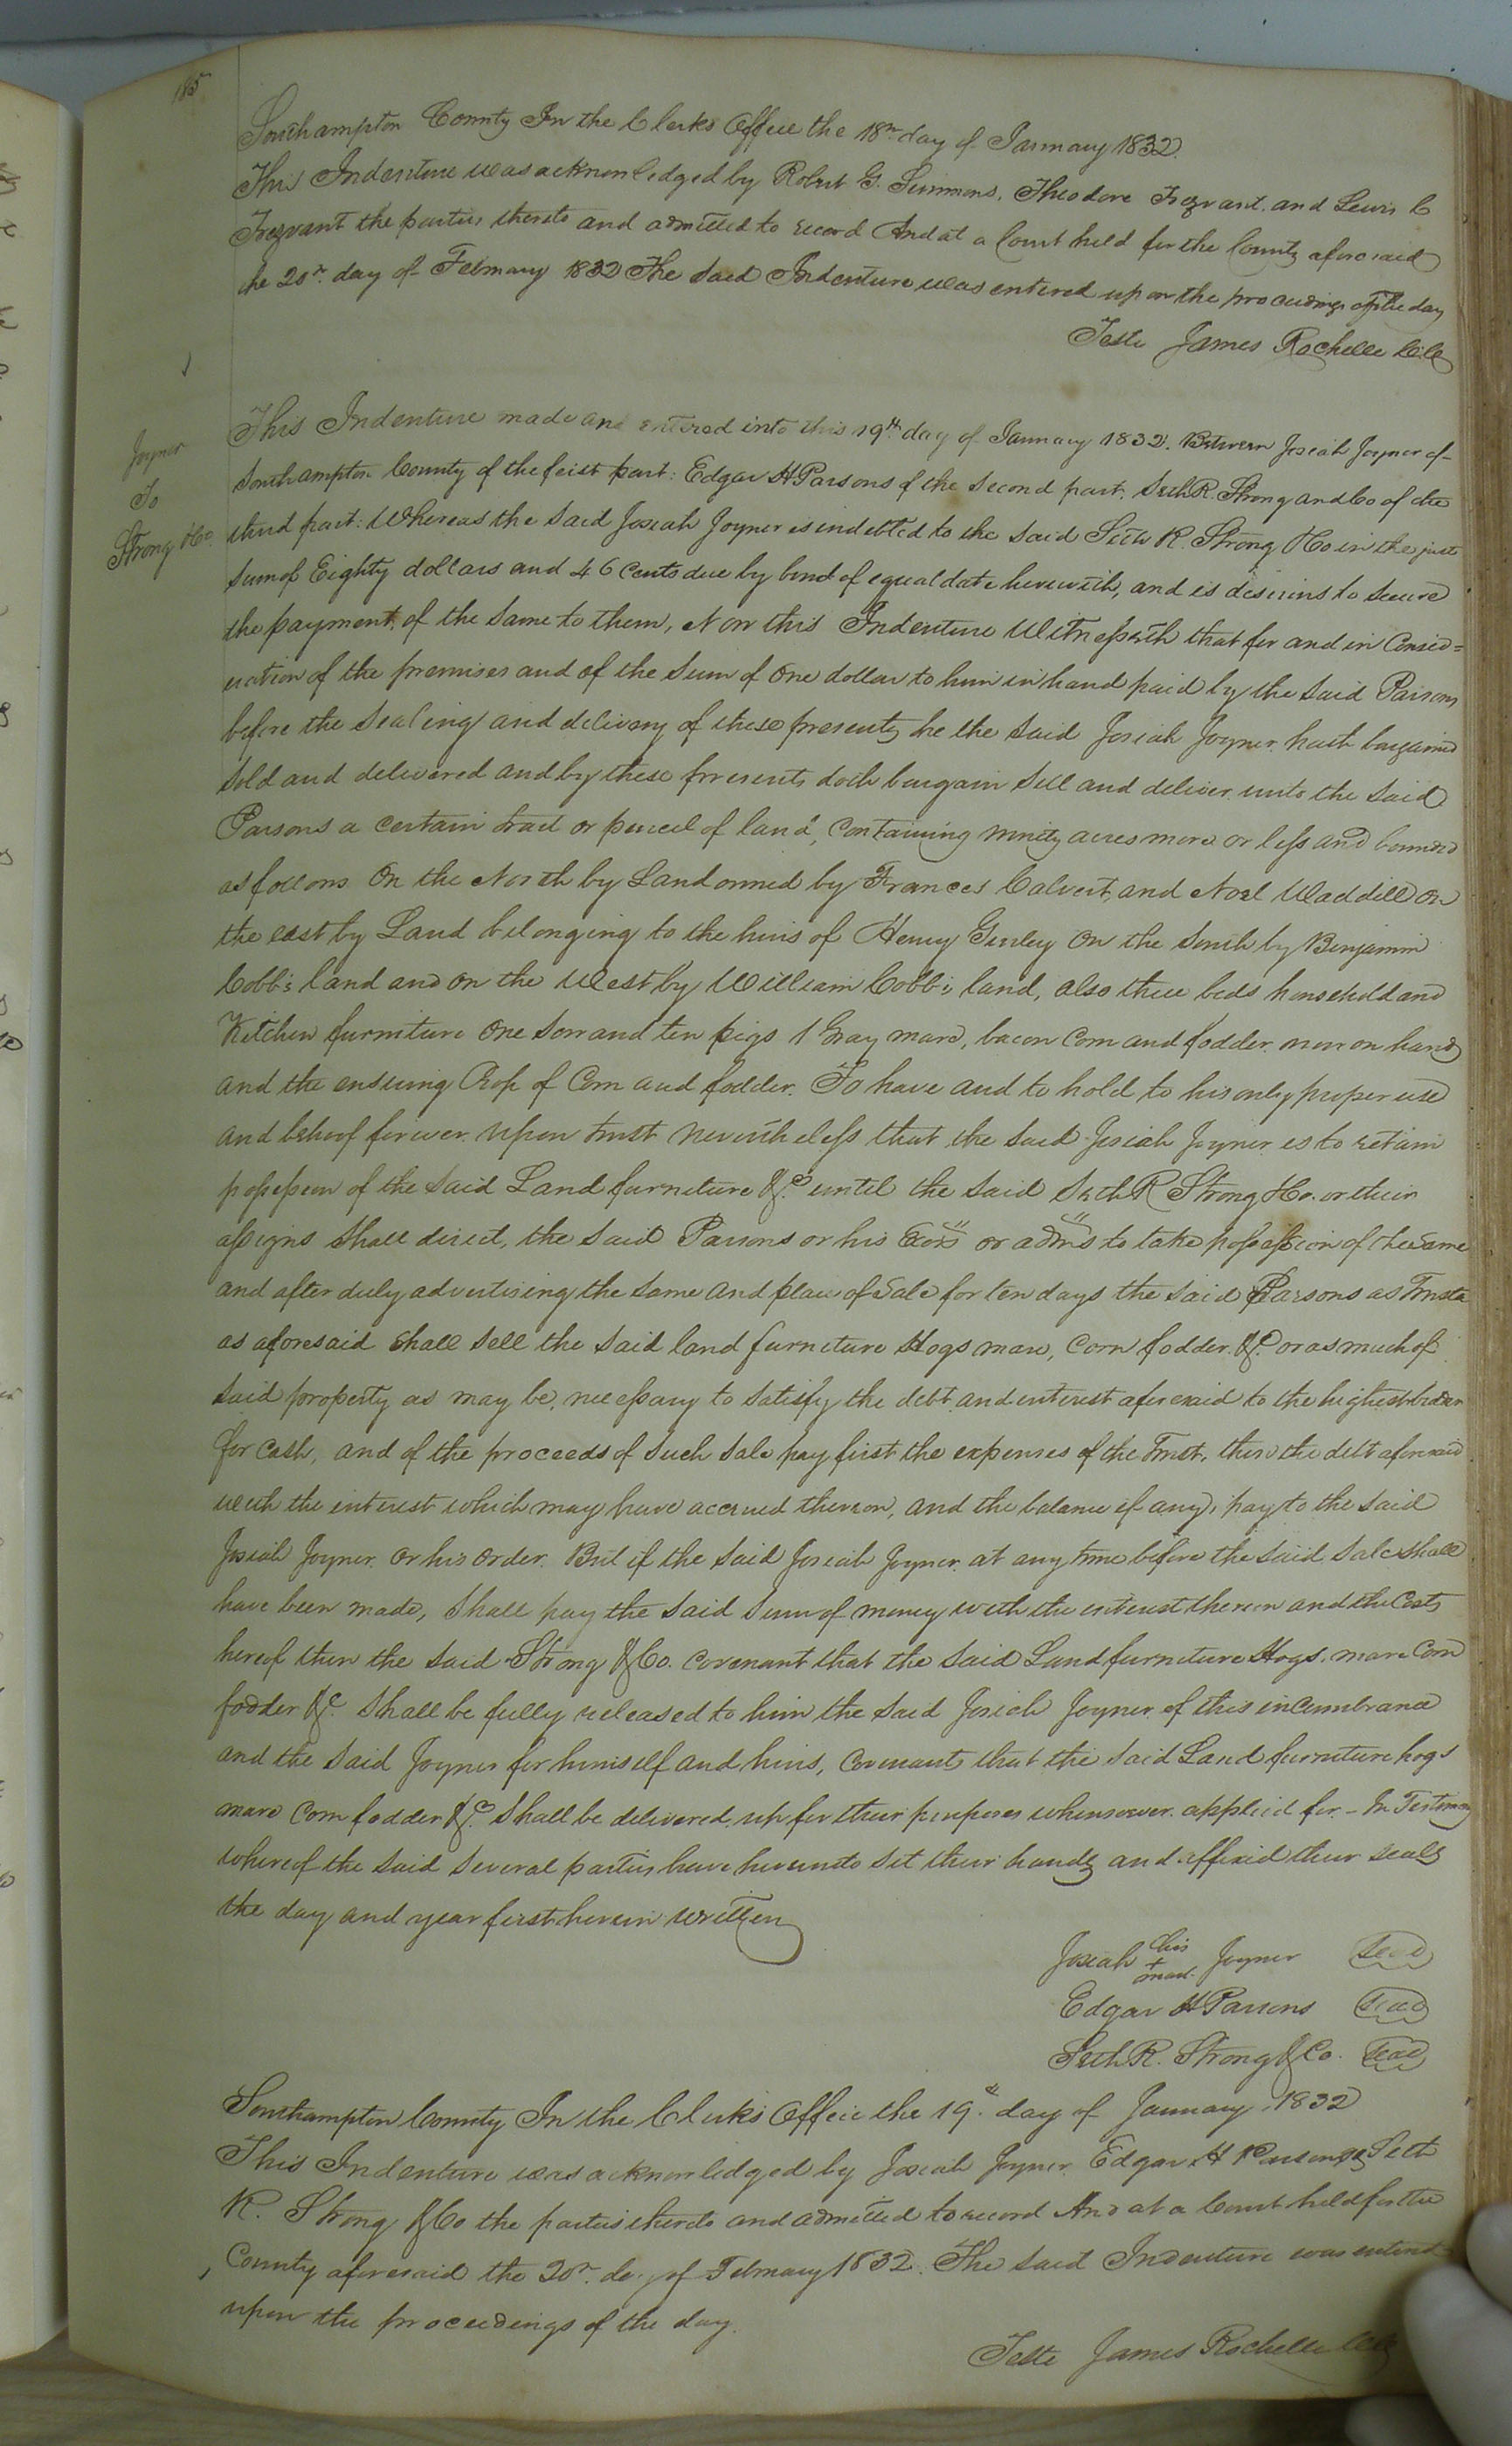 185
Southampton County In the Clerks Office the 18th day of January 1832.
This Indenture was acknowledged by Robert G. Simmons, Theodore Trezvant. and Lewis C
Trezvant the parties thereto and admitted to record And at a Court held for the County aforesaid
the 20th day of February 1832 The said Indenture was entered upon the proceedings of the day
Teste James Rochelle
Joyner
To
Strong & Co.
This Indenture made and entered into this 19th day of January 1832. Between Josiah Joyner of
Southampton County of the first part: Edgar H Parsons of the Second part. Seth R. Strong and Co of the
third part: Whereas the said Josiah Joyner is indebted to the said Seth R. Strong & Co in the just
Sum of Eighty dollars and 46 Cents due by bond of equal date herewith, and is desirous to secure
the payment of the same to them, Now this Indenture Witnesseth that for and in Consid=
eration of the premises and of the Sum of One dollar to him in hand paid by the said Parsons
before the Sealing and delivery of these presents he the said Josiah Joyner hath bargained
Sold and delivered and by these presents doth bargain Sell and deliver unto the said
Parsons a certain tract or parcel of land, Containing ninety acres more or less and bounded
as follows On the North by Land owned by Frances Calvert, and Noel Waddill on
the east by Land belonging to the heirs of Henry Gurley On the South by Benjamin
Cobb's land and on the West by William Cobb's land, also three beds household and
Kitchen furniture One Sow and ten pigs 1 Gray mare, bacon Corn and fodder now on hand
and the ensuing Crop of Corn and fodder. To have and to hold to his only proper use
and behoof forever. upon trust nevertheless that the said Josiah Joyner is to retain
possession of the said Land furniture &c. until the said Seth R Strong & Co. or their
assigns Shall direct, the said Parsons or his Exors or admrs to take possession of the same
and after duly advertising the same and place of Sale for ten days the said Parsons as Trustee
as aforesaid Shall Sell the said land furniture Hogs mare, Corn fodder &c. or as much of
said property as may be necessary to satisfy the debt and interest aforesaid to the highest bidder
for Cash, and of the proceeds of such Sale pay first the expenses of the Trust, then the debt aforesaid
with the interest which may have accrued thereon, and the balance if any, pay to the said
Josiah Joyner. Or his Order. But if the said Josiah Joyner at any time before the said Sale Shall
have been made, Shall pay the said Sum of money with the interest thereon and the Costs
hereof then the said Strong & Co. Covenant that the said Land furniture Hogs. mare Corn
fodder &c. Shall be fully released to him the said Josiah Joyner of this incumbrance
and the said Joyner for himself and heirs, Covenants that the said Land furniture hogs
mare Corn fodder &c. Shall be delivered up for their purposes whensoever applied for. – In Testimony
whereof the said Several parties have hereunto Set their hands and affixed their seals
the day and year first herein written
Josiah his + mark Joyner Seal
Edgar H Parsons Seal
Seth R. Strong & Co. Seal
Southampton County In the Clerks Office the 19th day of January 1832
This Indenture was acknowledged by Josiah Joyner Edgar H Parsons & Seth
R. Strong & Co the parties thereto and admitted to record And at a Court held for the
County aforesaid the 20th day of February 1832. The said Indenture was entered
upon the proceedings of the day.
Teste James Rochelle